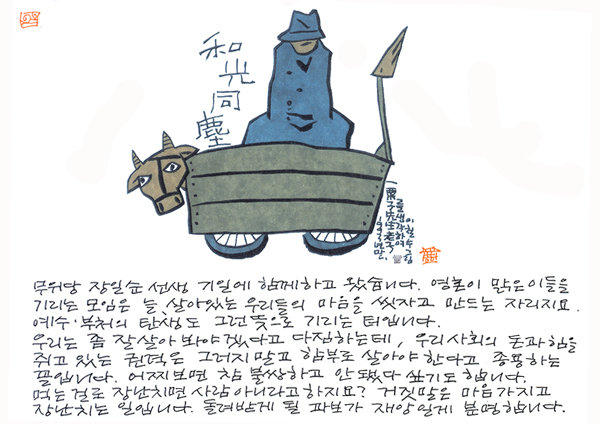 和光同塵
一粟子先生老子
를 생각하여
이철수 그림
무위당 장일순 선생 기일에 함께하고 왔습니다. 영혼이 맑은이들을
기리는 모임은 늘, 살아있는 우리들의 마음을 씻자고 만드는 자리지요.
예수·부처의 탄생도 그런뜻으로 기리는 터입니다.
우리는 좀 잘살아 봐야겠다고 다짐하는데, 우리사회의 돈과힘을
쥐고 있는 권력은 그러지말고 함부로 살아야 한다고 종용하는
꼴입니다. 어찌보면 참 불쌍하고 안됐다 싶기도 합니다.
먹는걸로 장난치면 사람아니라고하지요? 거짓말은 마음가지고
장난치는 일입니다. 돌려받게 될 과보가 재앙일게 분명합니다.